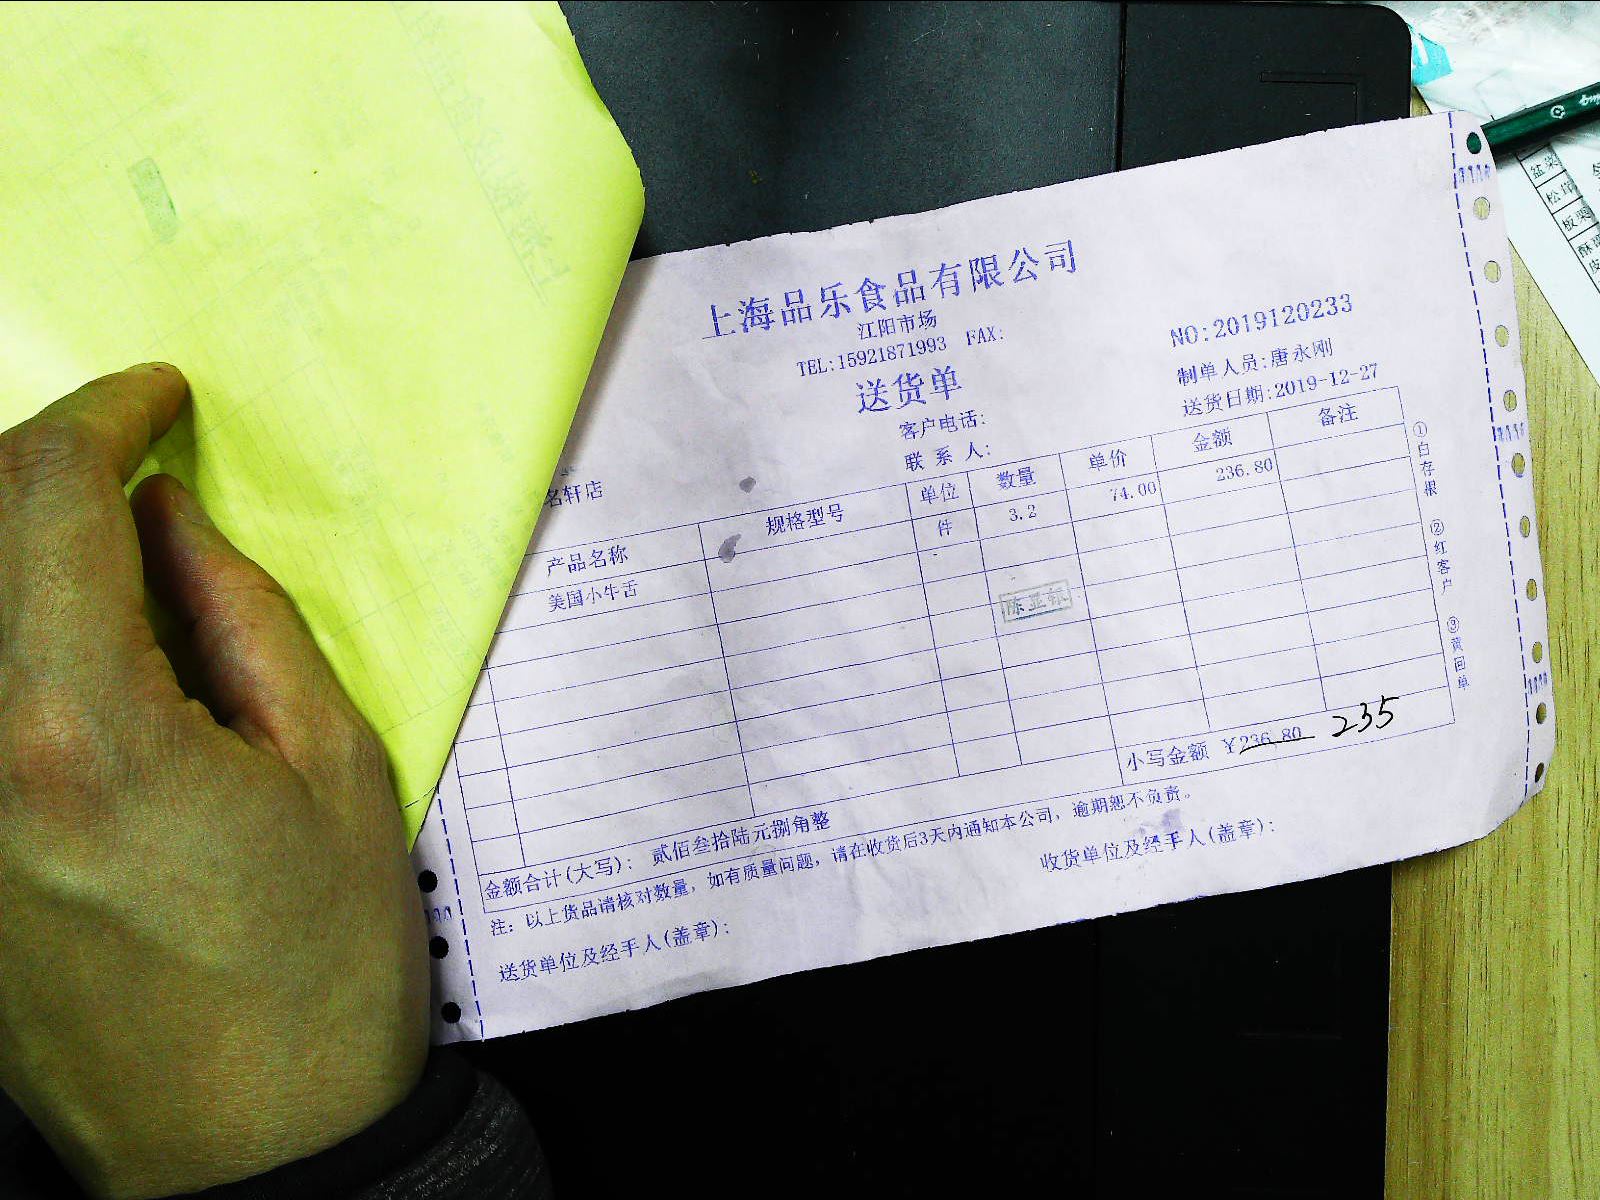 上海品乐食品有限公司
江阳市场
TEL:15921871993 FAX:
NO:2019120233
送货单
制单人员:唐永刚
客户电话:
送货日期:2019-12-27
名轩店
联 系 人:
产品名称 规格型号 单位 数量 单价 金额 备注
美国小牛舌 件 3.2 74.00 236.80
陈显银
小写金额 ￥236.80 235
金额合计(大写): 贰佰叁拾陆元捌角整
注: 以上货品请核对数量, 如有质量问题, 请在收货后3天内通知本公司, 逾期恕不负责。
送货单位及经手人(盖章):
收货单位及经手人(盖章):
①白存根 ②红客户 ③黄回单